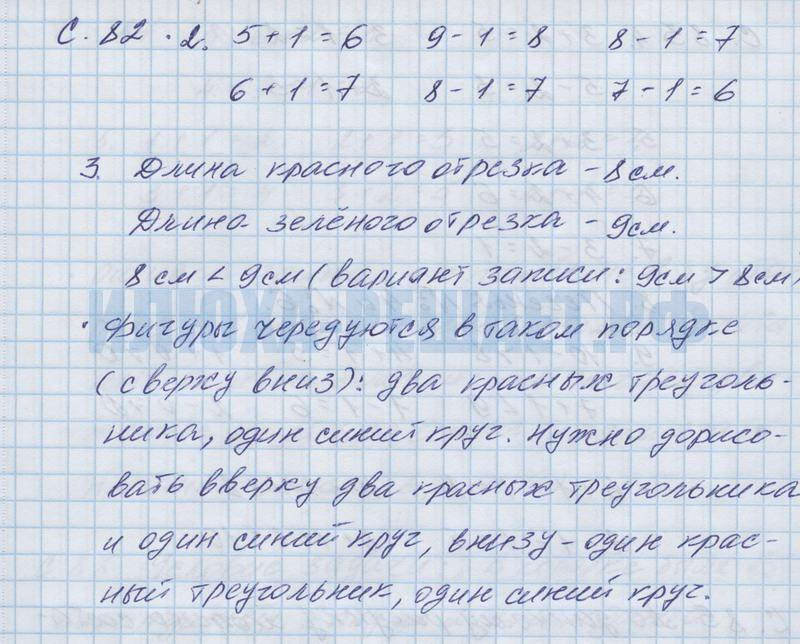 С. 82 . 2. 5+1=6 9-1=8 8-1=7
6+1=7 8-1=7 7-1=6
3. Длина красного отрезка - 8 см.
Длина зелёного отрезка - 9 см.
8 см < 9 см (вариант записи: 9 см > 8 см)
. Фигуры чередуются в таком порядке
(сверху вниз): два красных треуголь-
ника, один синий круг. Нужно дорисо-
вать вверху два красных треугольника
и один синий круг, внизу - один крас-
ный треугольник, один синий круг.